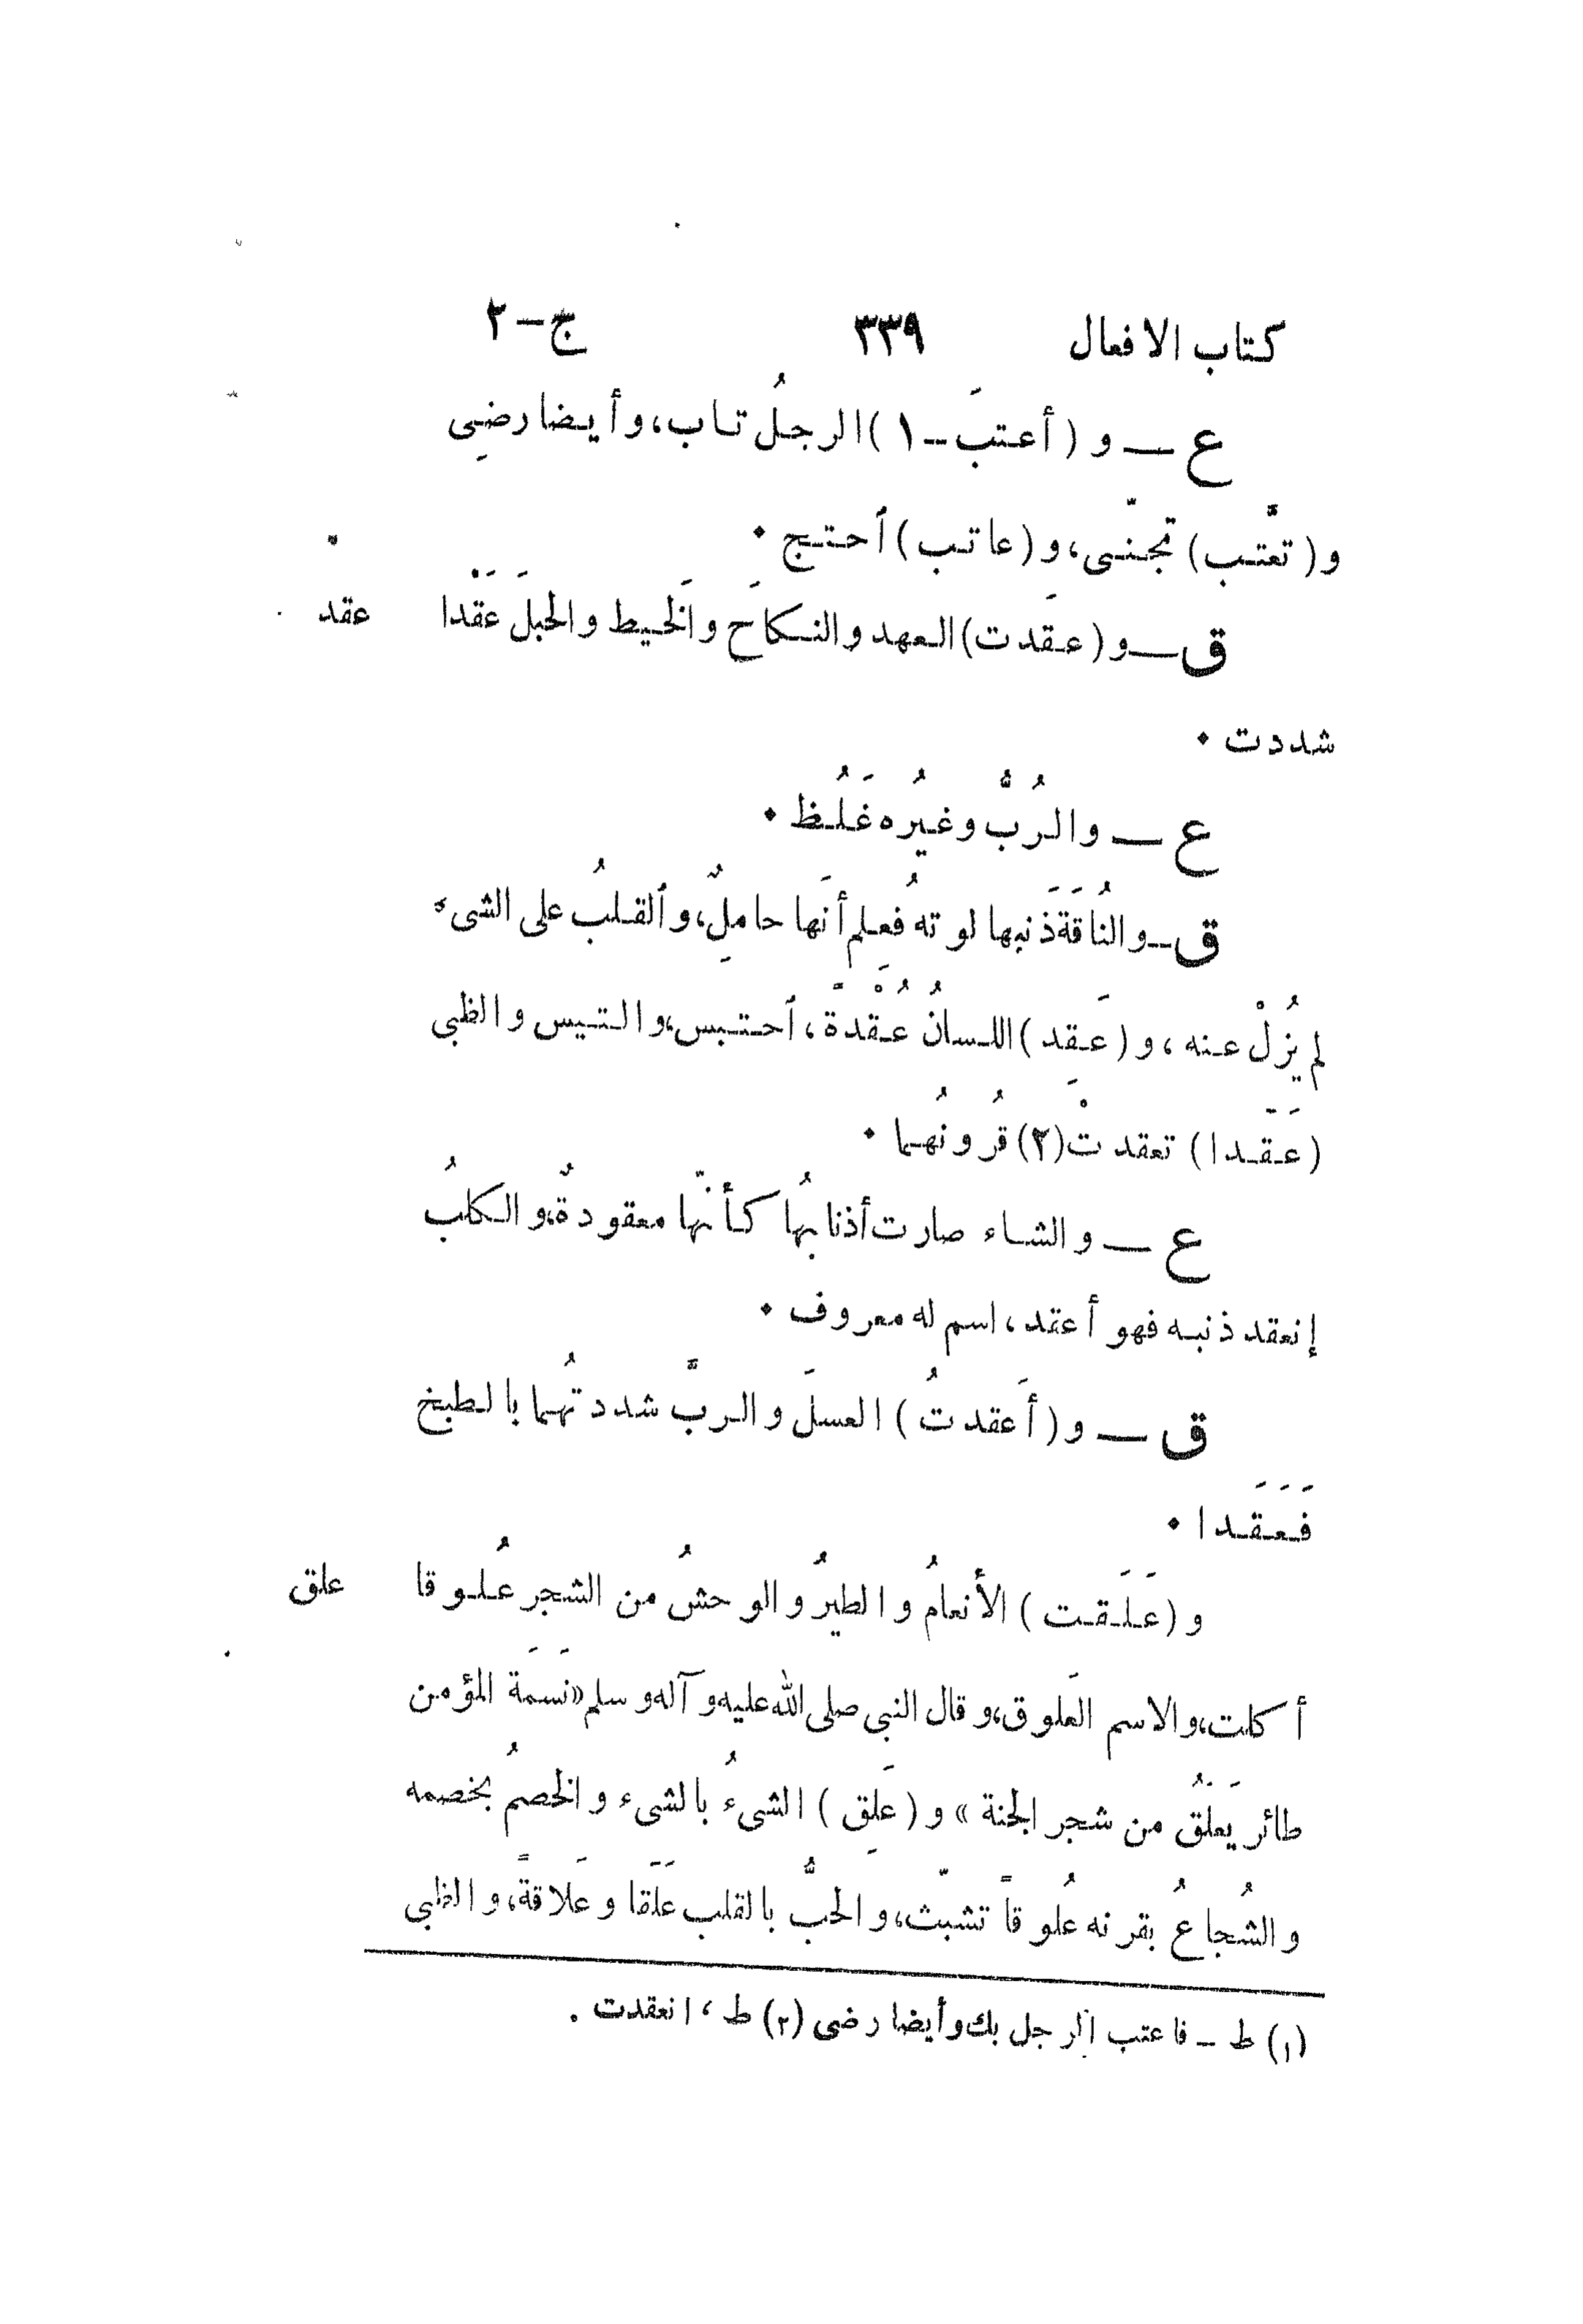 كتاب الافعال ٣٣٩ ج-٢
ع — و (أعتبَ-١) الرجلُ تاب، وأيضا رضِى
و (تعتَّب) تجنّى، و (عاتب) ٱحتج •
ق — و (عقَدت) العهد والنكاحَ والخَيط والحبلَ عَقْدا عقد
شددت •
ع — والرُبُّ وغيرُه غَلُظ •
ق — والنُاقَةَ ذَنبها لوتهُ فعِلم أنَها حاملٌ، وٱلقلبُ على الشىء
لم يزُلْ عنه، و (عَقِد) اللسانُ عُقْدةً، ٱحتبس، والتيس والظبى
(عَقّدا) تعقدتْ (٢) قُرونُهما •
ع — والشاء صارت أذنابُها كأنّها معقودةٌ، والكلبُ
إنعقد ذنبه فهو أعقد، اسم له معروف •
ق — و (أَعقدتُ) العسلَ والربَّ شددتُهما بالطبخ
فَعَقَدا •
و (عَلَقت) الأنعامُ والطيرُ والوحشُ من الشجر عُلوقا علق
أكلت، والاسم العَلوق، وقال النبى صلى الله عليه وآله وسلم «نَسمَة المؤمن
طائر يَعلَقُ من شجر الجنة» و (عَلِق) الشىءُ بالشىء والخصمُ بخصمه
والشُجاعُ بقرنه عُلوقاً تشبّث، والحبُّ بالقلب عَلَقا وعَلاقةً، والظبى
(١) ط - فاعتب الرجل بك وأيضا رضى (٢) ط، انعقدت .